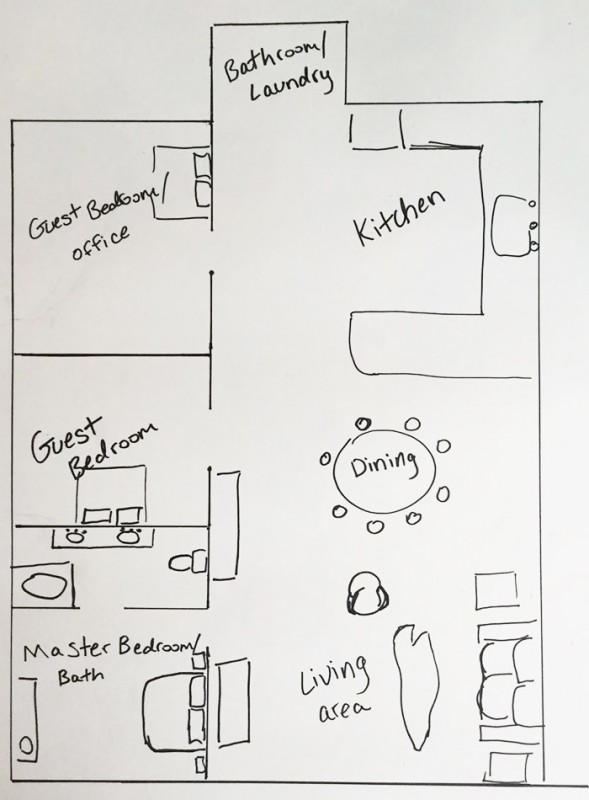 Bathroom/
Laundry
Guest Bedroom/
office
Kitchen
Guest
Bedroom
Dining
Master Bedroom/
Bath
Living
area